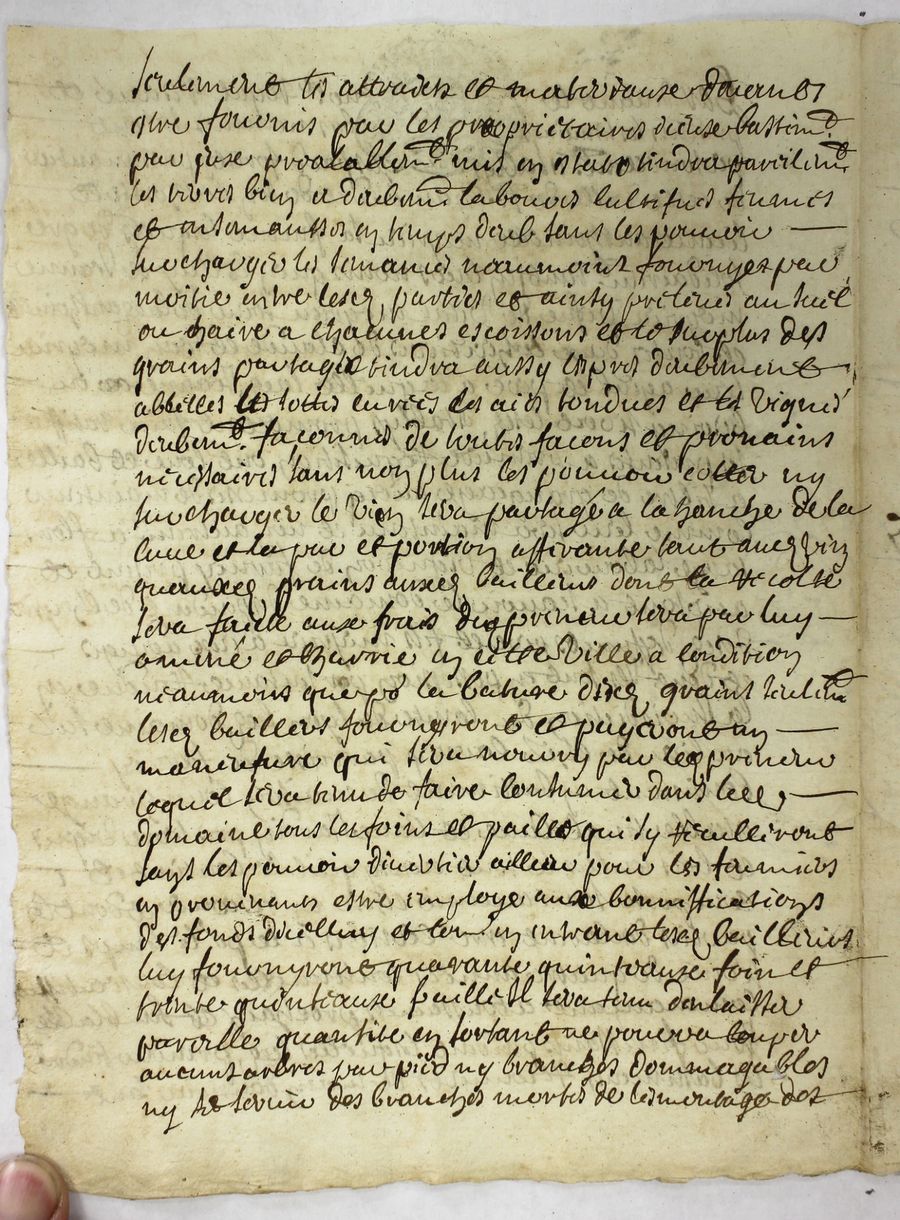 seulement les attraicts et materiaux devant
estre fournis par les propriétaires diceux bastim.t
par eux prealallem.t mis en estat tindra pareilem.t
les terres bien et deubem.t labourés cultivées fermées
et ensemanssés en temps deub sans les pouvoir
surcharger les semances neaumoins fournyes par
moitié entre lesq. parties et ainsy prélevé au suel
ou haire a chacunes escoissons et le surplus des
grains partagé tindra aussy les prés deubement
abbellés les lottes curées les aies tondues et les vignes
deubem.t façonnés de toutes facons et provains
nécessaires sans non plus les pouvoir ny
surcharger le vien sera partagé a la hanche de la
cuve et la par et portion affirante tant aucq. vin
quauxq. grains auxq. bailleurs dont la recolte
sera faicte aux frais duq. preneur sera par luy
amené et charrié en cette ville a condition
neaumoins que po.r la bature desq. grains seulem.t
lesq. bailleurs fournyront et payeront un
maneufure qui sera nourry par leq. preneur
lequel sera tenu de faire consumer dans lec.
domaine tous les foins et pailles qui sy reculliront
sans les pouvoir divertir ailleur pour les fumiers
en provenants estre employé aux bonniffications
des fonds dicelluy et com.e en entrant lesq. bailleurs
luy fournyront quarante quinteaux foin et
trente quinteaux paille Il sera tenu den laisser
pareille quantite en sortant ne pourra couper
aucuns arbres par pied ny branches dommagables
ny se servir des branches mortes de lesmontage des